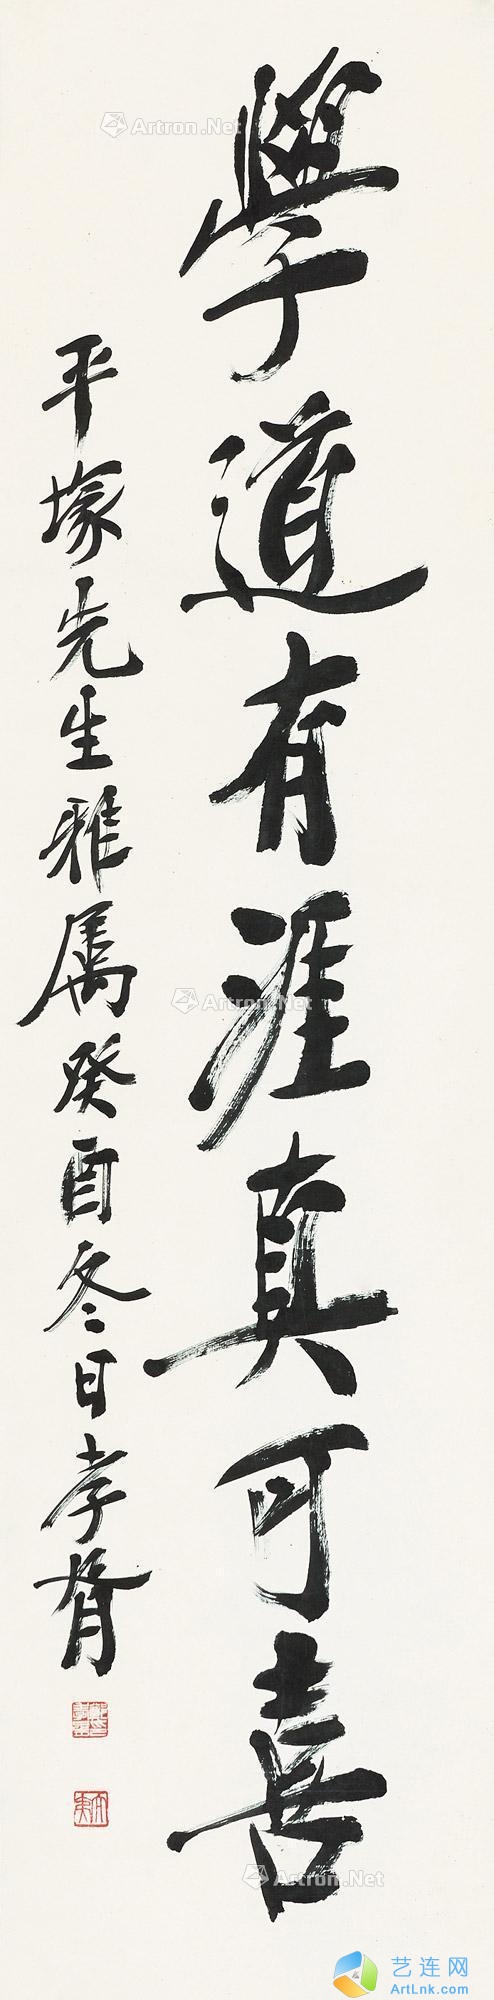 學道有涯真可喜
平塚先生雅属癸酉冬日孝胥
Artron.Net
Artron.Net
Artron.Net
艺连网
ArtLnk.com